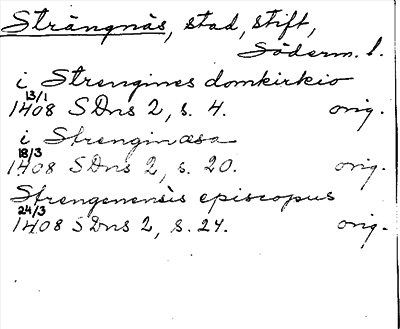 Strängnäs, stad, stift,
Söderm. l.
i Strengines domkirkio
13/1
1408 SDns 2, s. 4. orig.
i Strenginæsa
18/3
1408 SDns 2, s. 20. orig.
Strengenensis episcopus
24/3
1408 SDns 2, s. 24. orig.